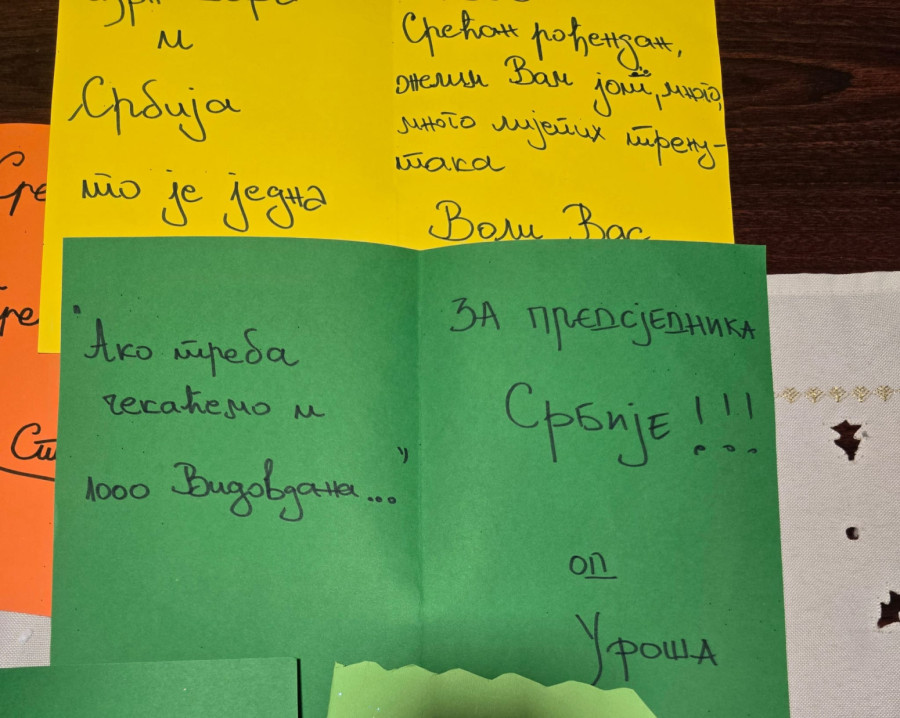 и
Србија
то је једна
Срећан рођендан,
желим Вам још, много,
много лијепих трену-
така
Воли Вас
"Ако треба
чекаћемо и
1000 Видовдана..."
ЗА ПРЕДСЈЕДНИКА
Србије!!!
од
Уроша